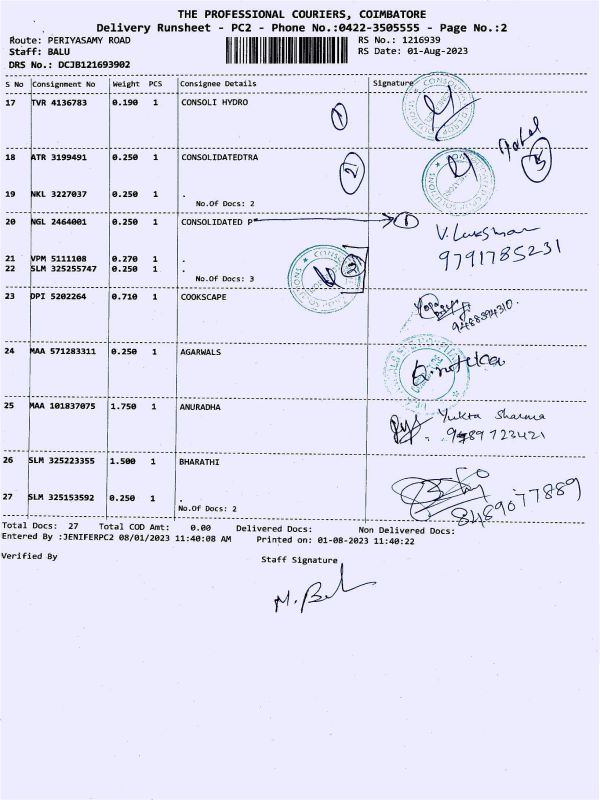 THE PROFESSIONAL COURIERS, COIMBATORE
Delivery Runsheet - PC2 - Phone No.:0422-3505555 - Page No.:2
Route: PERIYASAMY ROAD RS No.: 1216939
Staff: BALU RS Date: 01-Aug-2023
DRS No.: DCJB121693902
S No Consignment No Weight PCS Consignee Details Signature
17 TVR 4136783 0.190 1 CONSOLI HYDRO
1
18 ATR 3199491 0.250 1 CONSOLIDATEDTRA
2
19 NKL 3227037 0.250 1 .
No.Of Docs: 2
20 NGL 2464001 0.250 1 CONSOLIDATED P
1
V. Lakshman
9791785231
21 VPM 5111108 0.270 1 .
22 SLM 325255747 0.250 1 .
No.Of Docs: 3
23 DPI 5202264 0.710 1 COOKSCAPE
24 MAA 571283311 0.250 1 AGARWALS
25 MAA 101837075 1.750 1 ANURADHA
Yukta Sharma
9489723421
26 SLM 325223355 1.500 1 BHARATHI
27 SLM 325153592 0.250 1 .
No.Of Docs: 2
8489077889
Total Docs: 27 Total COD Amt: 0.00 Delivered Docs: Non Delivered Docs:
Entered By :JENIFERPC2 08/01/2023 11:40:08 AM Printed on: 01-08-2023 11:40:22
Verified By Staff Signature